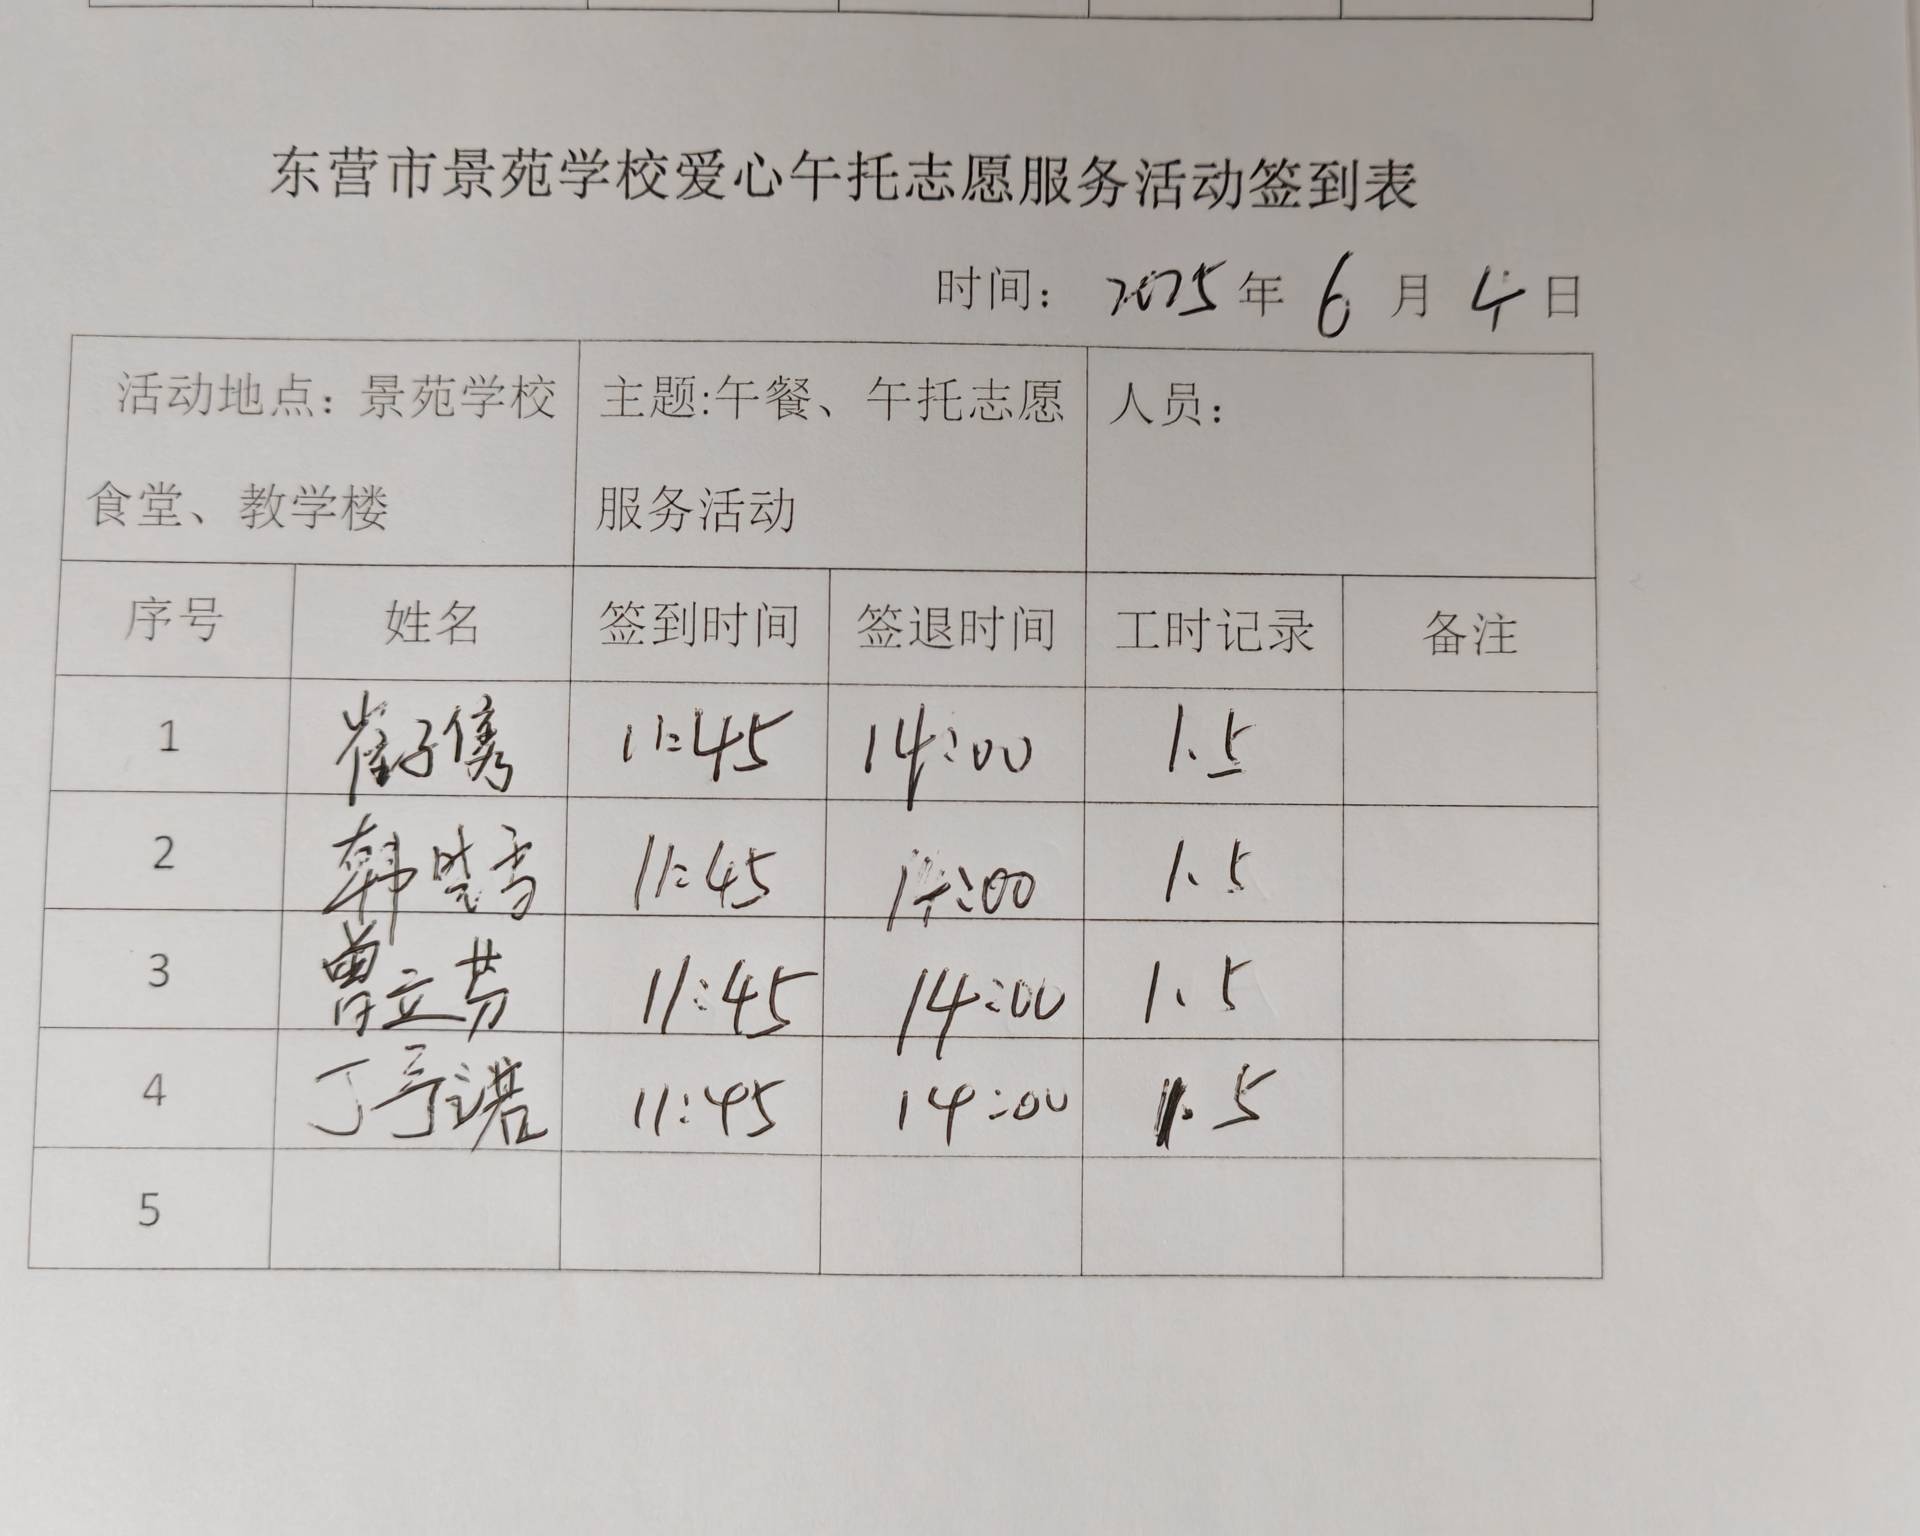 东营市景苑学校爱心午托志愿服务活动签到表
时间： 2025年 6 月 4 日
活动地点：景苑学校食堂、教学楼
主题:午餐、午托志愿服务活动
人员：
序号 姓名 签到时间 签退时间 工时记录 备注
1 崔子隽 11:45 14:00 1.5
2 韩晓雪 11:45 14:00 1.5
3 曹立芳 11:45 14:00 1.5
4 丁诺 11:45 14:00 1.5
5